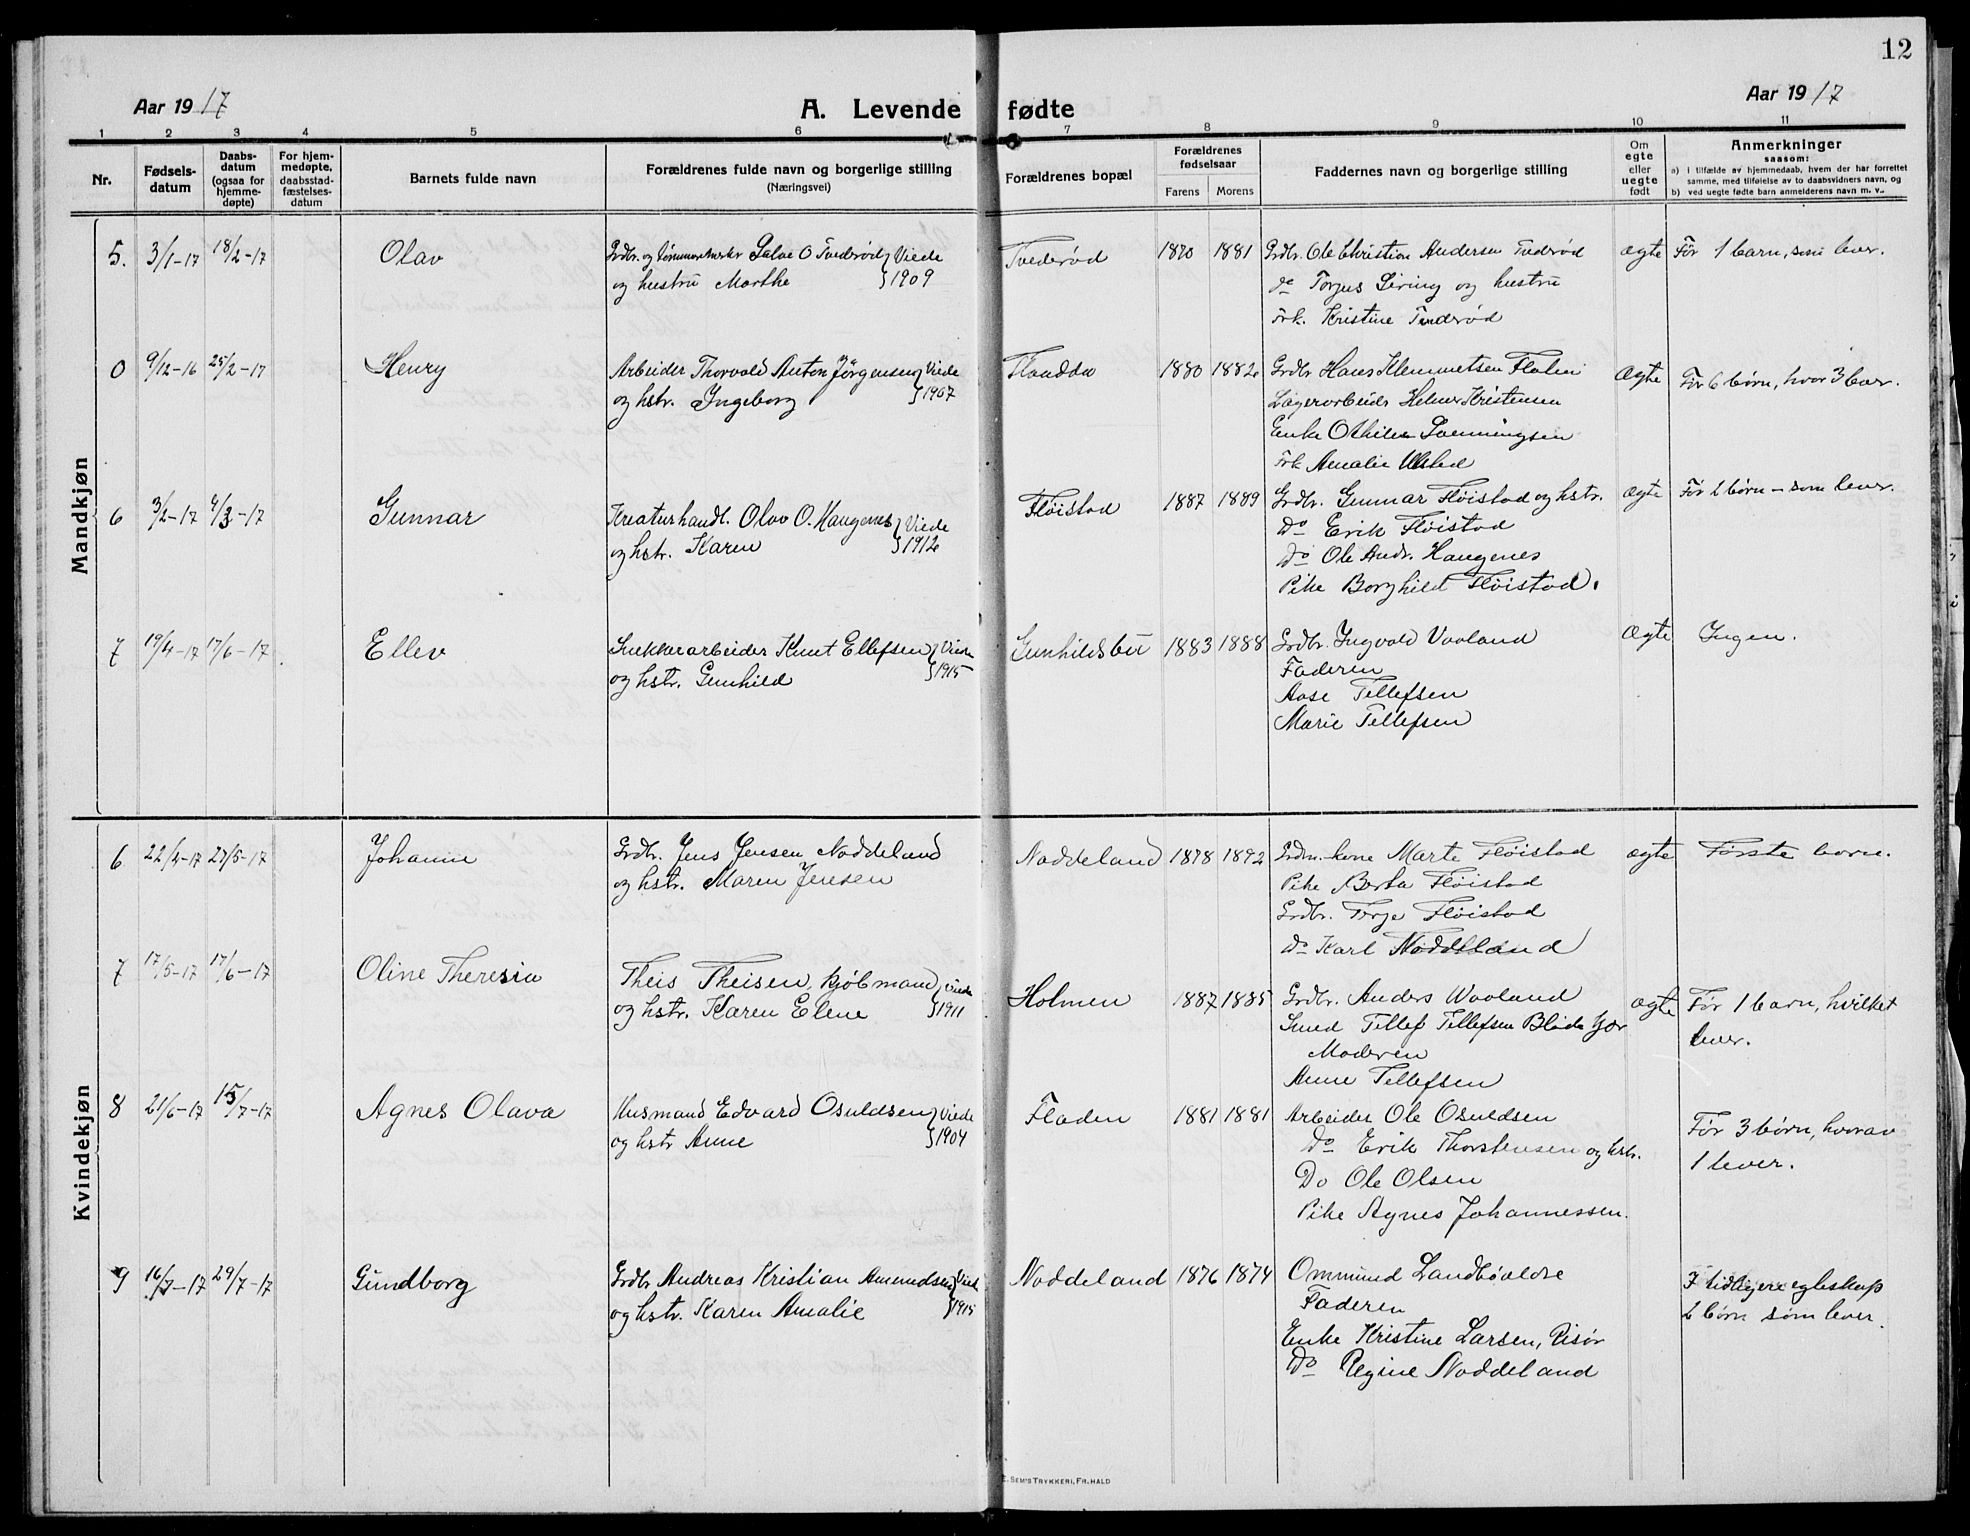 12
Aar 1917
A. Levende fødte
Aar 1917
1 2 3 4 5 6 7 8 9 10 11
Nr.
Fødsels-
datum
Daabs-
datum
(ogsaa for
hjemme-
døpte)
For hjem-
medøpte,
daabsstad-
fæstelses-
datum
Barnets fulde navn
Forældrenes fulde navn og borgerlige stilling
(Næringsvei)
Forældrenes bopæl
Forældrenes
fødselsaar
Farens Morens
Faddernes navn og borgerlige stilling
Om
egte
eller
uegte
født
Anmerkninger
saasom:
a) i tilfælde av hjemmedaab, hvem der har forrettet
samme, med tilføielse av to daabsvidners navn, og
b) ved uegte fødte barn anmelderens navn m. v..
Mandkjøn
5. 3/1-17 18/2-17 Olav
Grdbr. og tømmermerker Salve O Tvederød Viede
og hustru Marthe 1909
Tvederød 1870 1881
Grdbr. Ole Christian Andersen Tvederød
do Torjus Siring og hustru
Frk. Kristine Tvederød
ægte Før 1 barn, som lever.
0 9/12-16 25/2-17 Henry
Arbeider Thorvald Anton Jørgensen Viede
og hstr. Ingeborg 1907
1880 1882
Grdbr Hans Klemmetsen Flaten
Lagerarbeider Helmer Kristensen
Enke Othilie Svenningsen
Frk Amalie Ulstad
Ægte Før 6 børn, hvor 3 lever.
6 3/2-17 4/3-17 Gunnar
Kreaturhandl. Olav O. Haugenes Viede
og hstr. Karen 1912
Fløistad 1887 1889
Grdbr. Gunnar Fløistad og hstr.
Do Erik Fløistad
Do Ole Andr. Haugenes
Pike Borghild Fløistad.
Ægte Før 2 børn - som lever.
7 19/4-17 17/6-17 Ellev
Snekkerarbeider Knut Ellefsen Viede
og hstr. Gunhild 1915
Gunhildsbu 1883 1888
Grdbr. Ingvald Vaaland
Faderen
Aase Tellefsen
Marie Tellefsen
Ægte Ingen.
Kvindekjøn
6 22/4-17 27/5-17 Johanne
Grdbr. Jens Jensen Noddeland
og hstr. Maren Jensen
Noddeland 1878 1892
Grdm. kone Marte Fløistad
Pike Berta Fløistad
Grdbr. Terje Fløistad
Do Karl Noddeland
ægte Første barn.
7 17/5-17 17/6-17 Oline Theresia
Theis Theisen, kjøbmand Viede
og hstr. Karen Elene 1911
Holmen 1887 1885
Grdbr. Anders Waaland
Smed Tellef Tellefsen
Moderen
Anne Tellefsen
ægte Før 1 barn, hvilket
lever.
8 21/6-17 15/7-17 Agnes Olava
Husmand Edvard Osuldsen Viede
og hstr Anne 1904
Fladen 1881 1881
Arbeider Ole Osuldsen
Do Erik Thorstensen og hstr.
Do Ole Olsen
Pike Agnes Johannessen.
Før 3 børn, hvorav
1 lever.
9 16/7-17 29/7-17 Gundborg
Grdbr Andreas Kristian Amundsen Viede
og hstr. Karen Amalie 1915
Noddeland 1876 1874
Ommund
Faderen
Enke Kristine Larsen, Risør
Do Regine Noddeland
I tidligere egteskap
2 børn som lever.
E. SEM'S TRYKKERI, FR.HALD